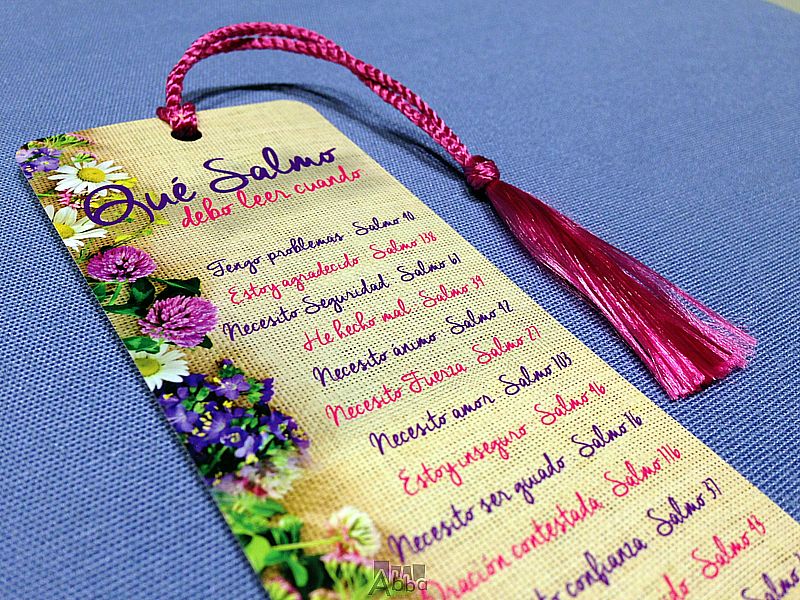 Qué Salmo
debo leer cuando
Tengo problemas Salmo 40
Estoy agradecido Salmo 138
Necesito Seguridad Salmo 61
He hecho mal Salmo 39
Necesito animo Salmo 42
Necesito Fuerza Salmo 27
Necesito amor Salmo 103
Estoy inseguro Salmo 96
Necesito ser guiado Salmo 16
Oración contestada Salmo 116
confianza Salmo 37
Salmo 43
Abba